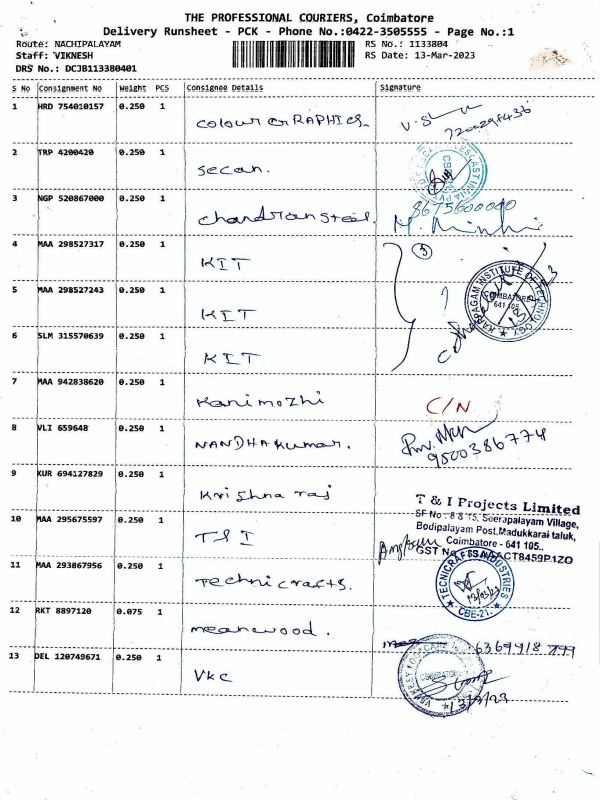 THE PROFESSIONAL COURIERS, Coimbatore
Delivery Runsheet - PCK - Phone No.:0422-3505555 - Page No.:1
Route: NACHIPALAYAM RS No.: 1133804
Staff: VIKNESH RS Date: 13-Mar-2023
DRS No.: DCJB113380401
S No Consignment No Weight PCS Consignee Details Signature
1 HRD 754010157 0.250 1
colour GRAPHICS
2 TRP 4200420 0.250 1
Secan.
3 NGP 520867000 0.250 1 8675600000
Chandran steel.
4 MAA 298527317 0.250 1 3
KIT
KARPAGAM INSTITUTE OF TECHNOLOGY
COIMBATORE
641 105
5 MAA 298527243 0.250 1
KIT
6 SLM 315570639 0.250 1
KIT
7 MAA 942838620 0.250 1
Kanimozhi C/N
8 VLI 659648 0.250 1
NANDHAKumar. 9500386774
9 KUR 694127829 0.250 1
Krishna raj
T & I Projects Limited
SF No : 8 & 15, Seerapalayam Village,
Bodipalayam Post, Madukkarai taluk,
Coimbatore - 641 105.
10 MAA 295675597 0.250 1
TSI
11 MAA 293867956 0.250 1
Technicrafts.
TECNICRAFTS INDUSTRIES
13/03/23
CBE-21.
12 RKT 8897120 0.075 1
meanwood.
13 DEL 120749671 0.250 1
VKC
COIMBATORE
13/3/23